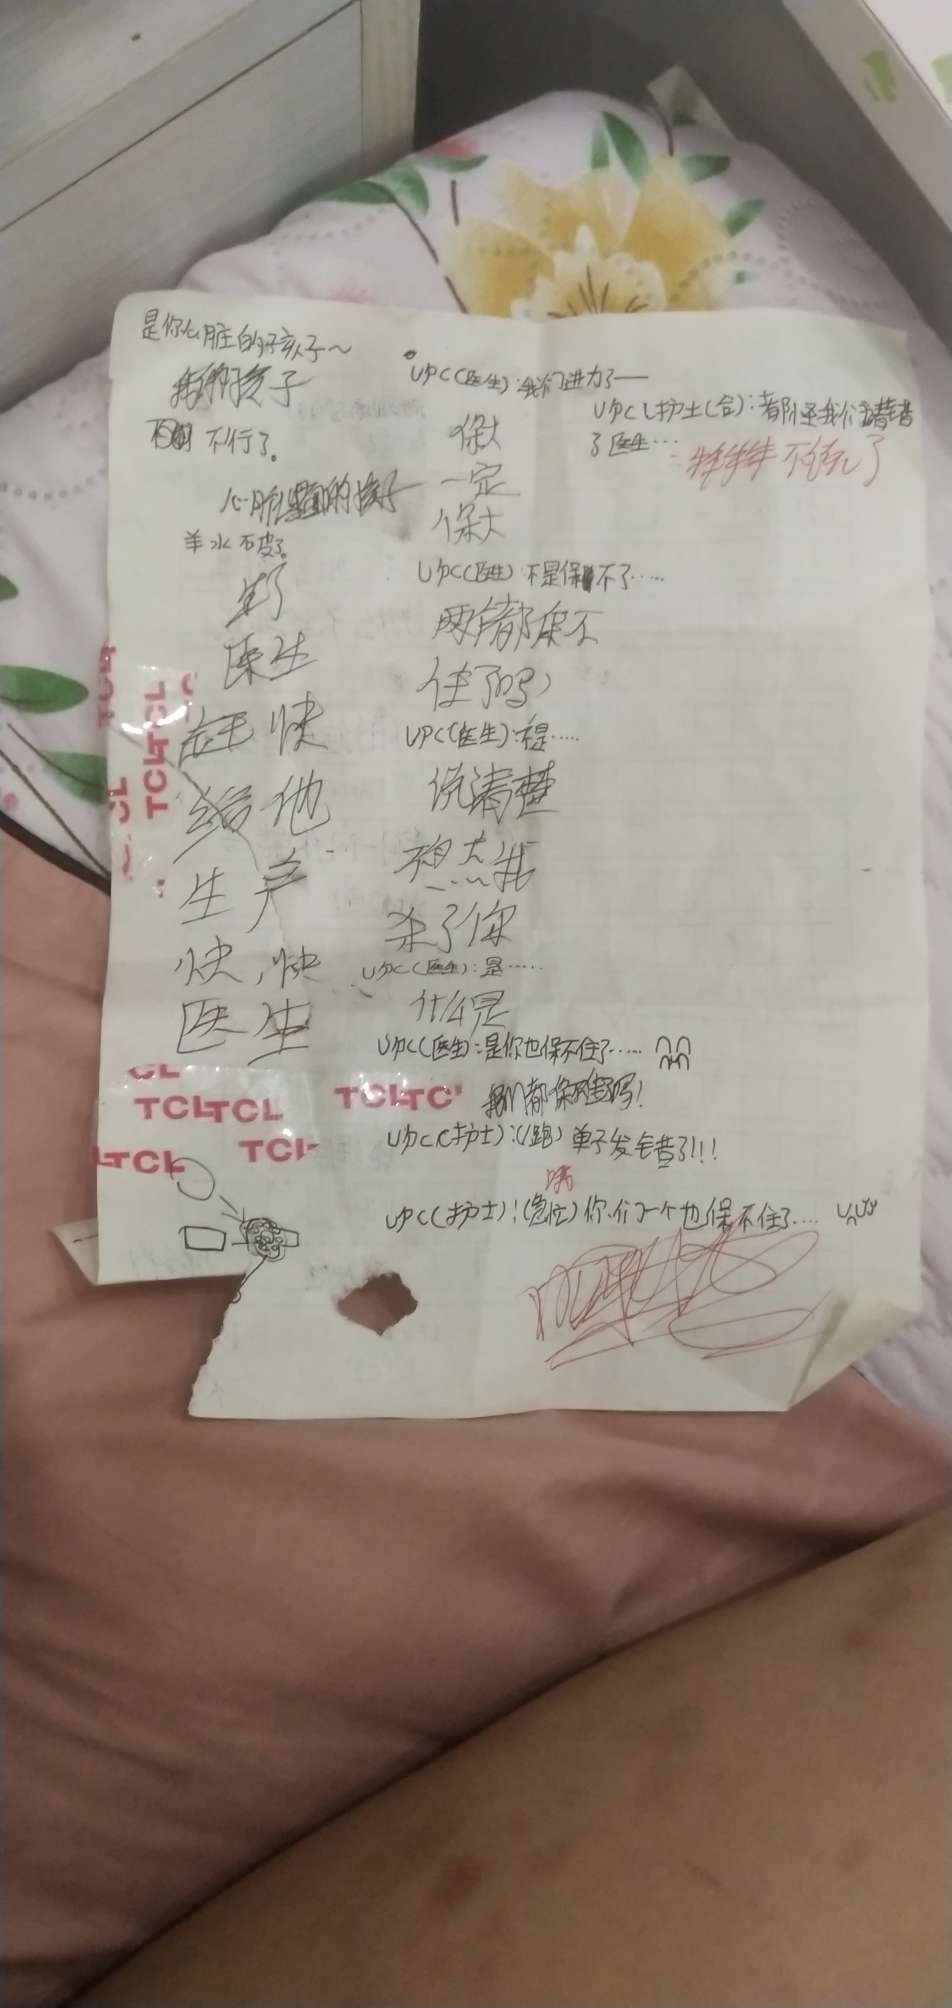 是你心脏的孩子~
孩子
不行了。
心脏的孩子
羊水破了。
生了
医生
赶快
给他
生产
快,快
医生
TCL
TCL
TCL
TCL TCL
TCL TC
TCL
TCL
UPC(医生):我们进力了——
保大
一定
保大
UPC(医生):不是保不了……
两个都保不
住了吗
UPC(医生):是……
说清楚
不然我
杀了你
UPC(医生):是……
什么是
UPC(医生):是你也保不住了……
我们都保不住了吗!
UPC(护士):(跑)单子发错了!!!
UPC(护士):(急忙)你们一个也保不住了……
UPC(护士(合):都怪我们
了医生…
不玩了